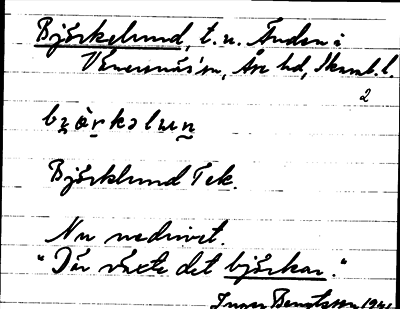 Björkelund, t. u. Änden i
Vänersnäs sn, Åse hd, Skarab.l.
2
bjørkəlun
Björklund Tek.
Nu nedrivet.
"Där växte det björkar."
Bengtsson